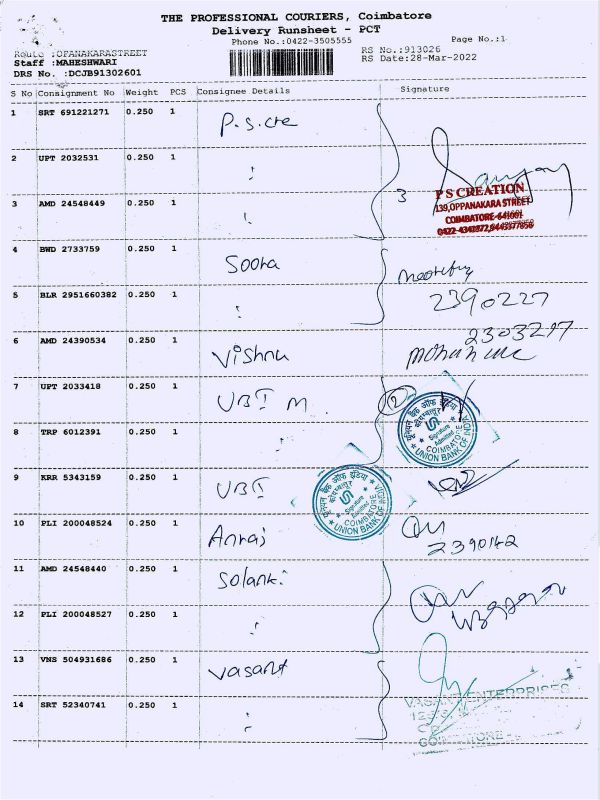 THE PROFESSIONAL COURIERS, Coimbatore
Delivery Runsheet - PCT
Phone No.:0422-3505555
Page No.:1
Route :OPANAKARASTREET
Staff :MAHESHWARI
DRS No. :DCJB91302601
RS No.:913026
RS Date:28-Mar-2022
S No Consignment No Weight PCS Consignee Details Signature
1 SRT 691221271 0.250 1 P.S.cre
2 UPT 2032531 0.250 1
3 AMD 24548449 0.250 1
3
P S CREATION
139,OPPANAKARA STREET
COIMBATORE-641001
4 BWD 2733759 0.250 1 Soona
5 BLR 2951660382 0.250 1
2390227
6 AMD 24390534 0.250 1 Vishnu
2303297
7 UPT 2033418 0.250 1 UBI M.
2
8 TRP 6012391 0.250 1
यूनियन बैंक ऑफ इंडिया
कोयम्बतूर
Signature
Admitted
COIMBATORE
UNION BANK OF INDIA
9 KRR 5343159 0.250 1 UBI
यूनियन बैंक ऑफ इंडिया
कोयम्बतूर
Signature
Admitted
COIMBATORE
UNION BANK OF INDIA
10 PLI 200048524 0.250 1 Anraj
2390142
11 AMD 24548440 0.250 1 Solanki
12 PLI 200048527 0.250 1
13 VNS 504931686 0.250 1 Vasant
VASANT ENTERPRISES
14 SRT 52340741 0.250 1
COIMBATORE